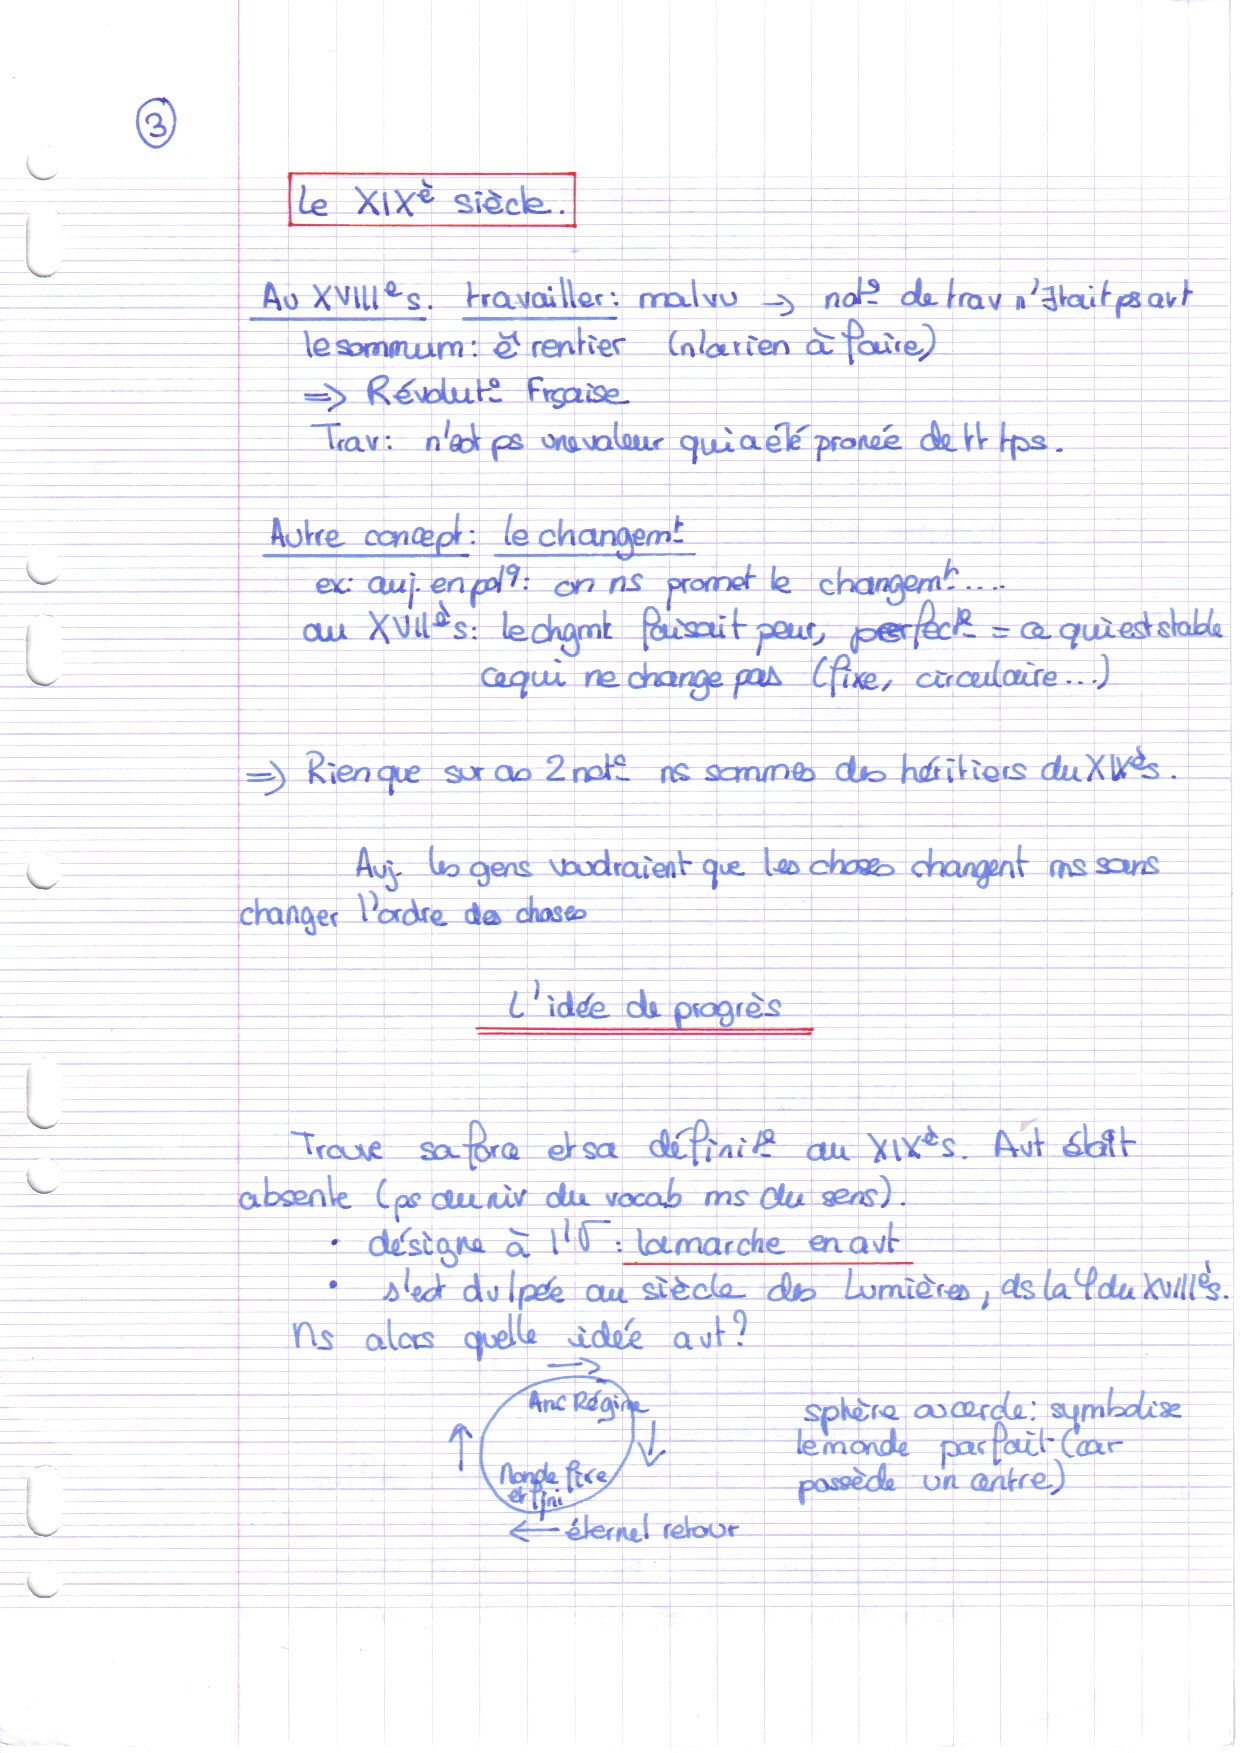 3
Le XIXè siècle.
Au XVIIIe s. travailler: mal vu → not° de trav n'∃tait ps avt
le sommum: ê rentier (n'a rien à faire)
=> Révolut° Frçaise
Trav: n'est ps une valeur qui a été pronée de tt tps.
Autre concept: le changemt
ex: auj. en polq: on ns promet le changemt....
au XVIIè s: le chgmt faisait peur, perfect° = ce qui est stable
ce qui ne change pas (fixe, circulaire...)
=> Rien que sur ces 2 not° ns sommes des héritiers du XIXès.
Auj. les gens voudraient que les choses changent ms sans
changer l'ordre des choses
L'idée de progrès
Trouve sa force et sa définit° au XIXès. Avt était
absente (ps au niv du vocab ms du sens).
• désigne à l' : la marche en avt
• s'est dvlpée au siècle des Lumières, ds la φ du XVIIIès.
Ms alors quelle idée avt?
→
Anc Régime
↑ ↓
Monde fixe
et fini
← éternel retour
sphère ou cercle: symbolise
le monde parfait (car
possède un centre)